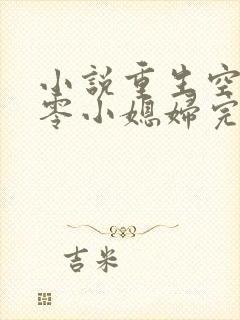 小說重生空
零小媳婦完
吉米